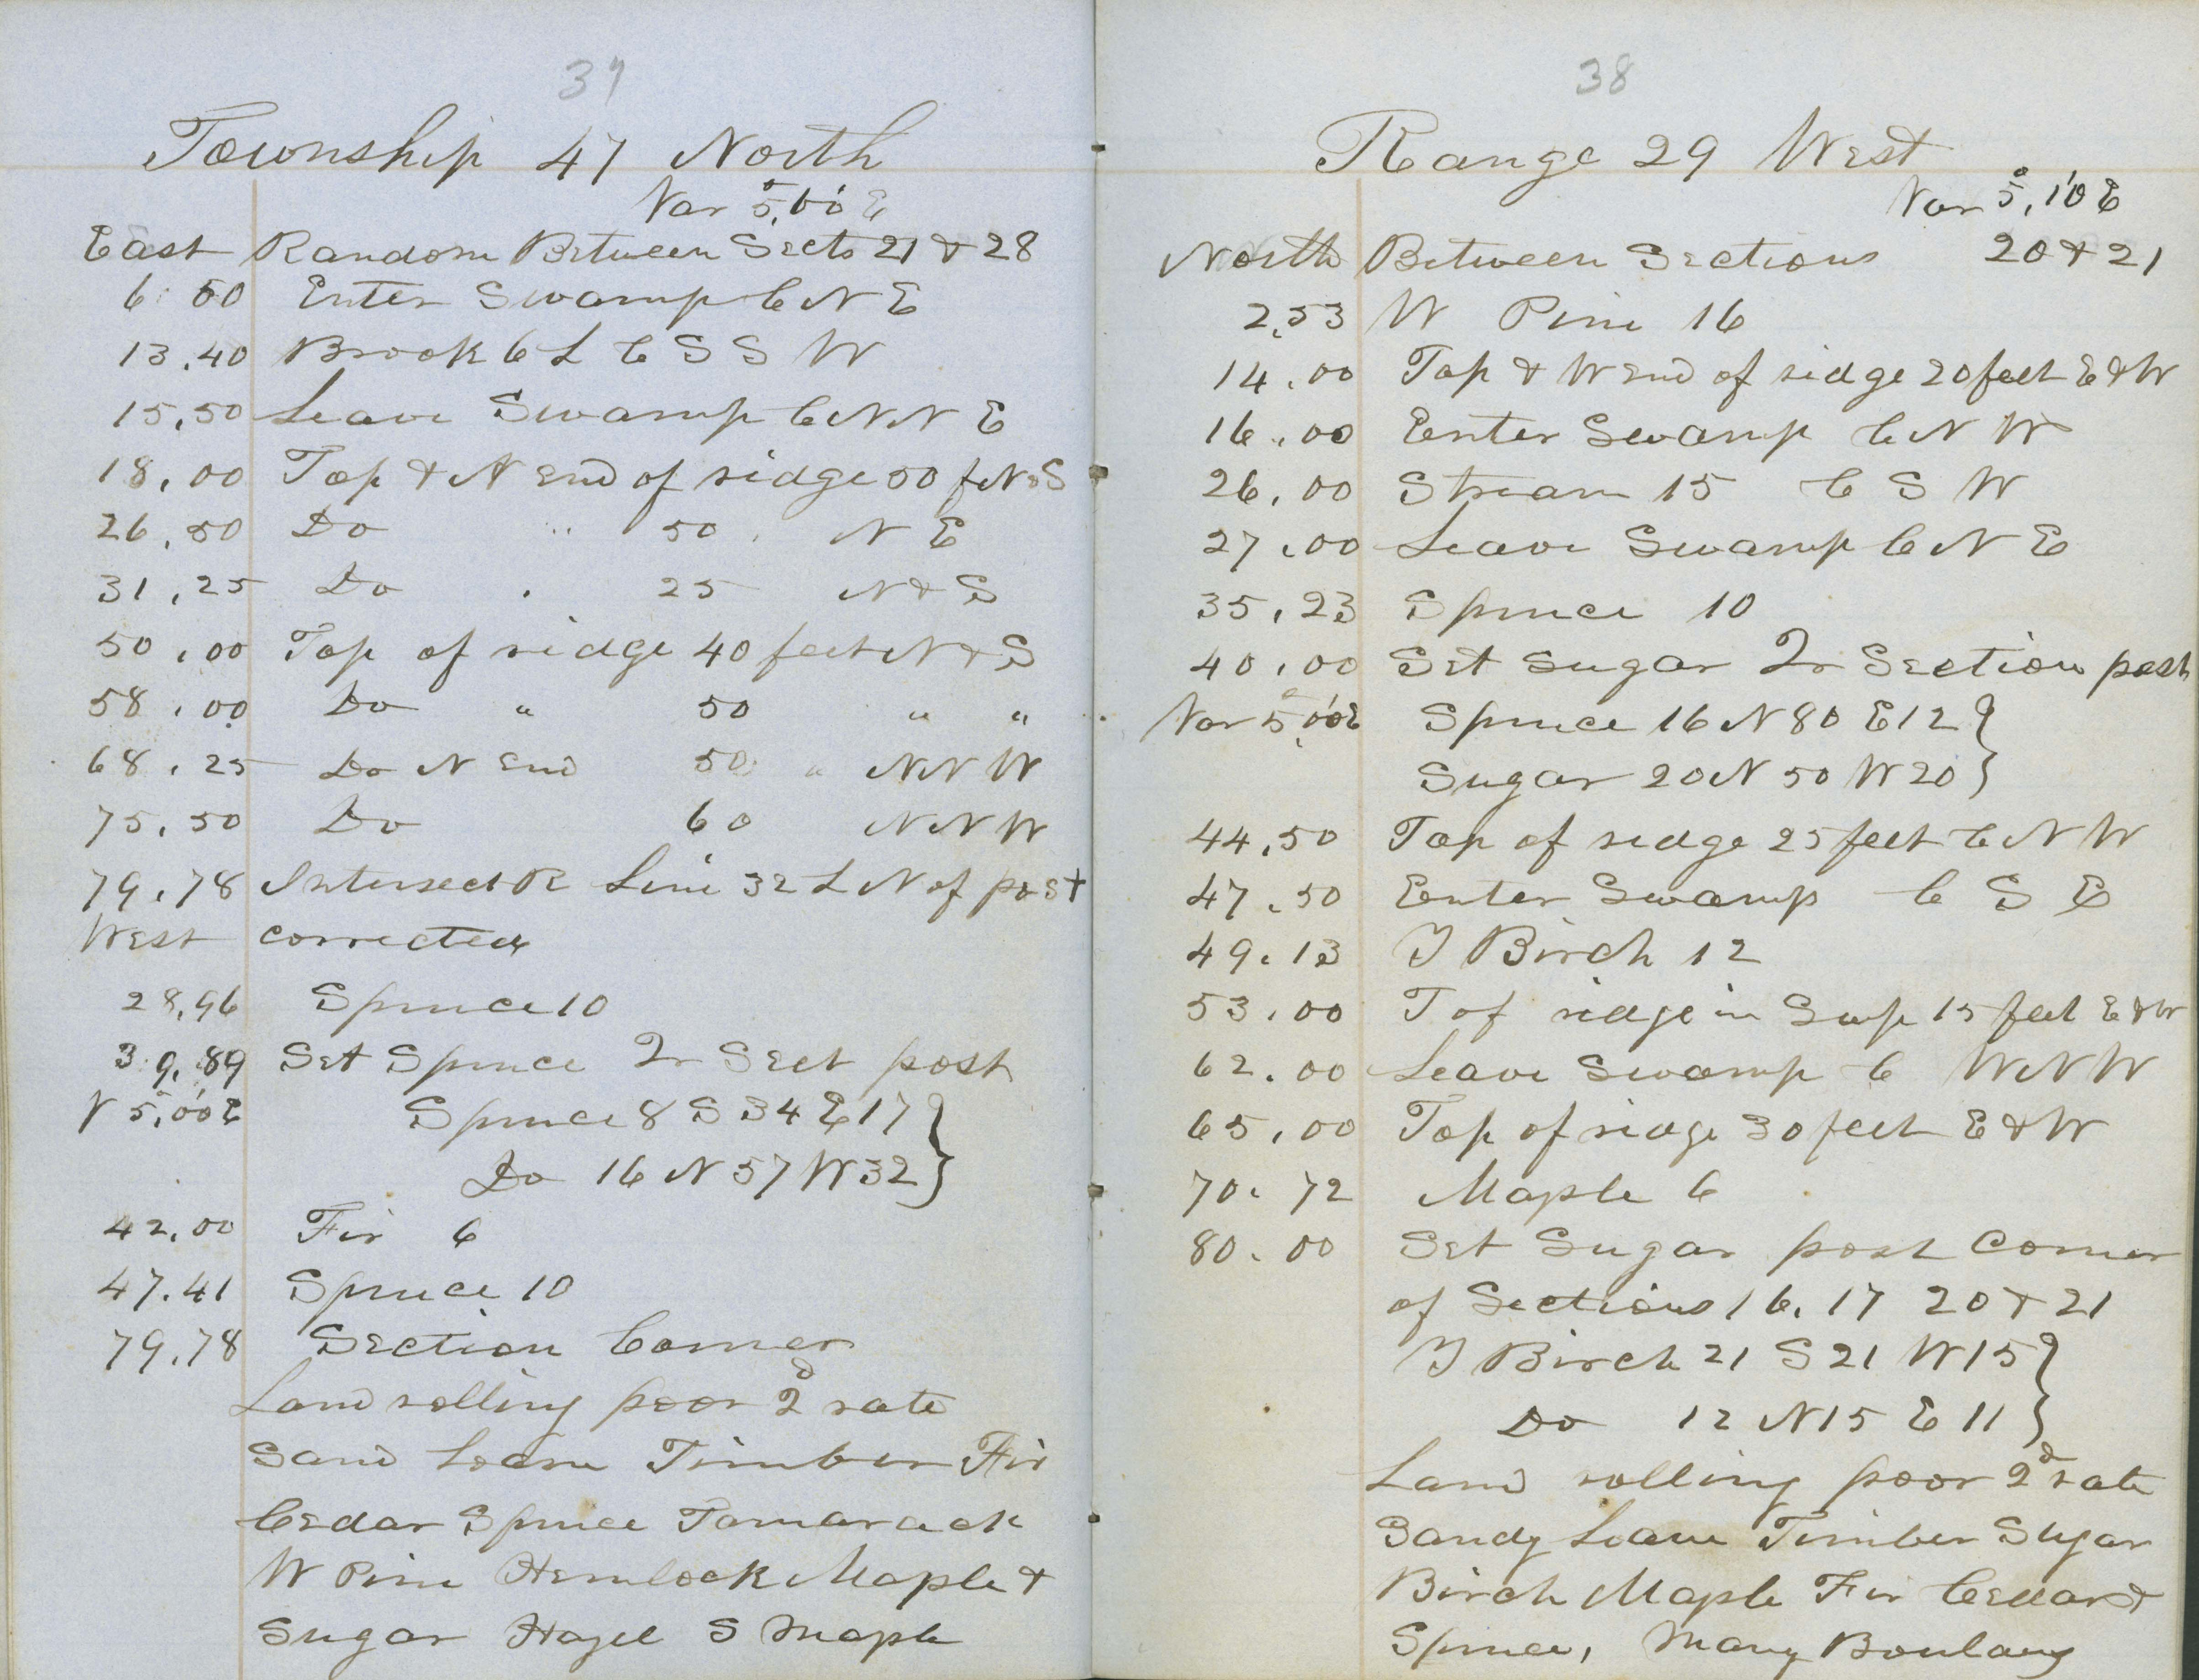 37
Township 47 North
Var 5°,00' E
East Random Between Sects 21 & 28
6 50 Enter Swamp C N E
13.40 Brook 6 L C S S W
15,50 Leave Swamp C N N E
18,00 Top & N End of ridge 50 f N & S
26,50 Do " 50 N E
31,25 Do " 25 N & S
50,00 Top of ridge 40 feet N & S
58,00 Do " 50 " "
68,25 Do N End 50 " N N W
75,50 Do 60 N N W
79,78 Intersect R Line 32 L N of post
West corrected
28,96 Spruce 10
39,89 Set Spruce Qr Sect post
V 5°,00' E Spruce 8 S 34 E 17 }
Do 16 N 57 W 32 }
42,00 Fir 6
47.41 Spruce 10
79,78 Section Corner
Land rolling poor 2d rate
Sand Loam Timber Fir
Cedar Spruce Tamarack
W Pine Hemlock Maple &
Sugar Hazel S Maple
38
Range 29 West
Var 5°,10' E
North Between Sections 20 & 21
2,53 W Pine 16
14.00 Top & W End of ridge 20 feet E & W
16.00 Enter Swamp C N W
26,00 Stream 15 C S W
27,00 Leave Swamp C N E
35,23 Spruce 10
40,00 Set Sugar Qr Section post
Var 5°,00' E Spruce 16 N 80 E 12 }
Sugar 20 N 50 W 20 }
44,50 Top of ridge 25 feet C N W
47.50 Enter Swamp C S E
49.13 Y Birch 12
53.00 T of ridge in Swp 15 feet E & W
62.00 Leave Swamp C W N W
65,00 Top of ridge 30 feet E & W
70.72 Maple 6
80.00 Set Sugar post Corner
of Sections 16, 17 20 & 21
Y Birch 21 S 21 W 15 }
Do 12 N 15 E 11 }
Land rolling poor 2d rate
Sandy Loam Timber Sugar
Birch Maple Fir Cedar &
Spruce, Many